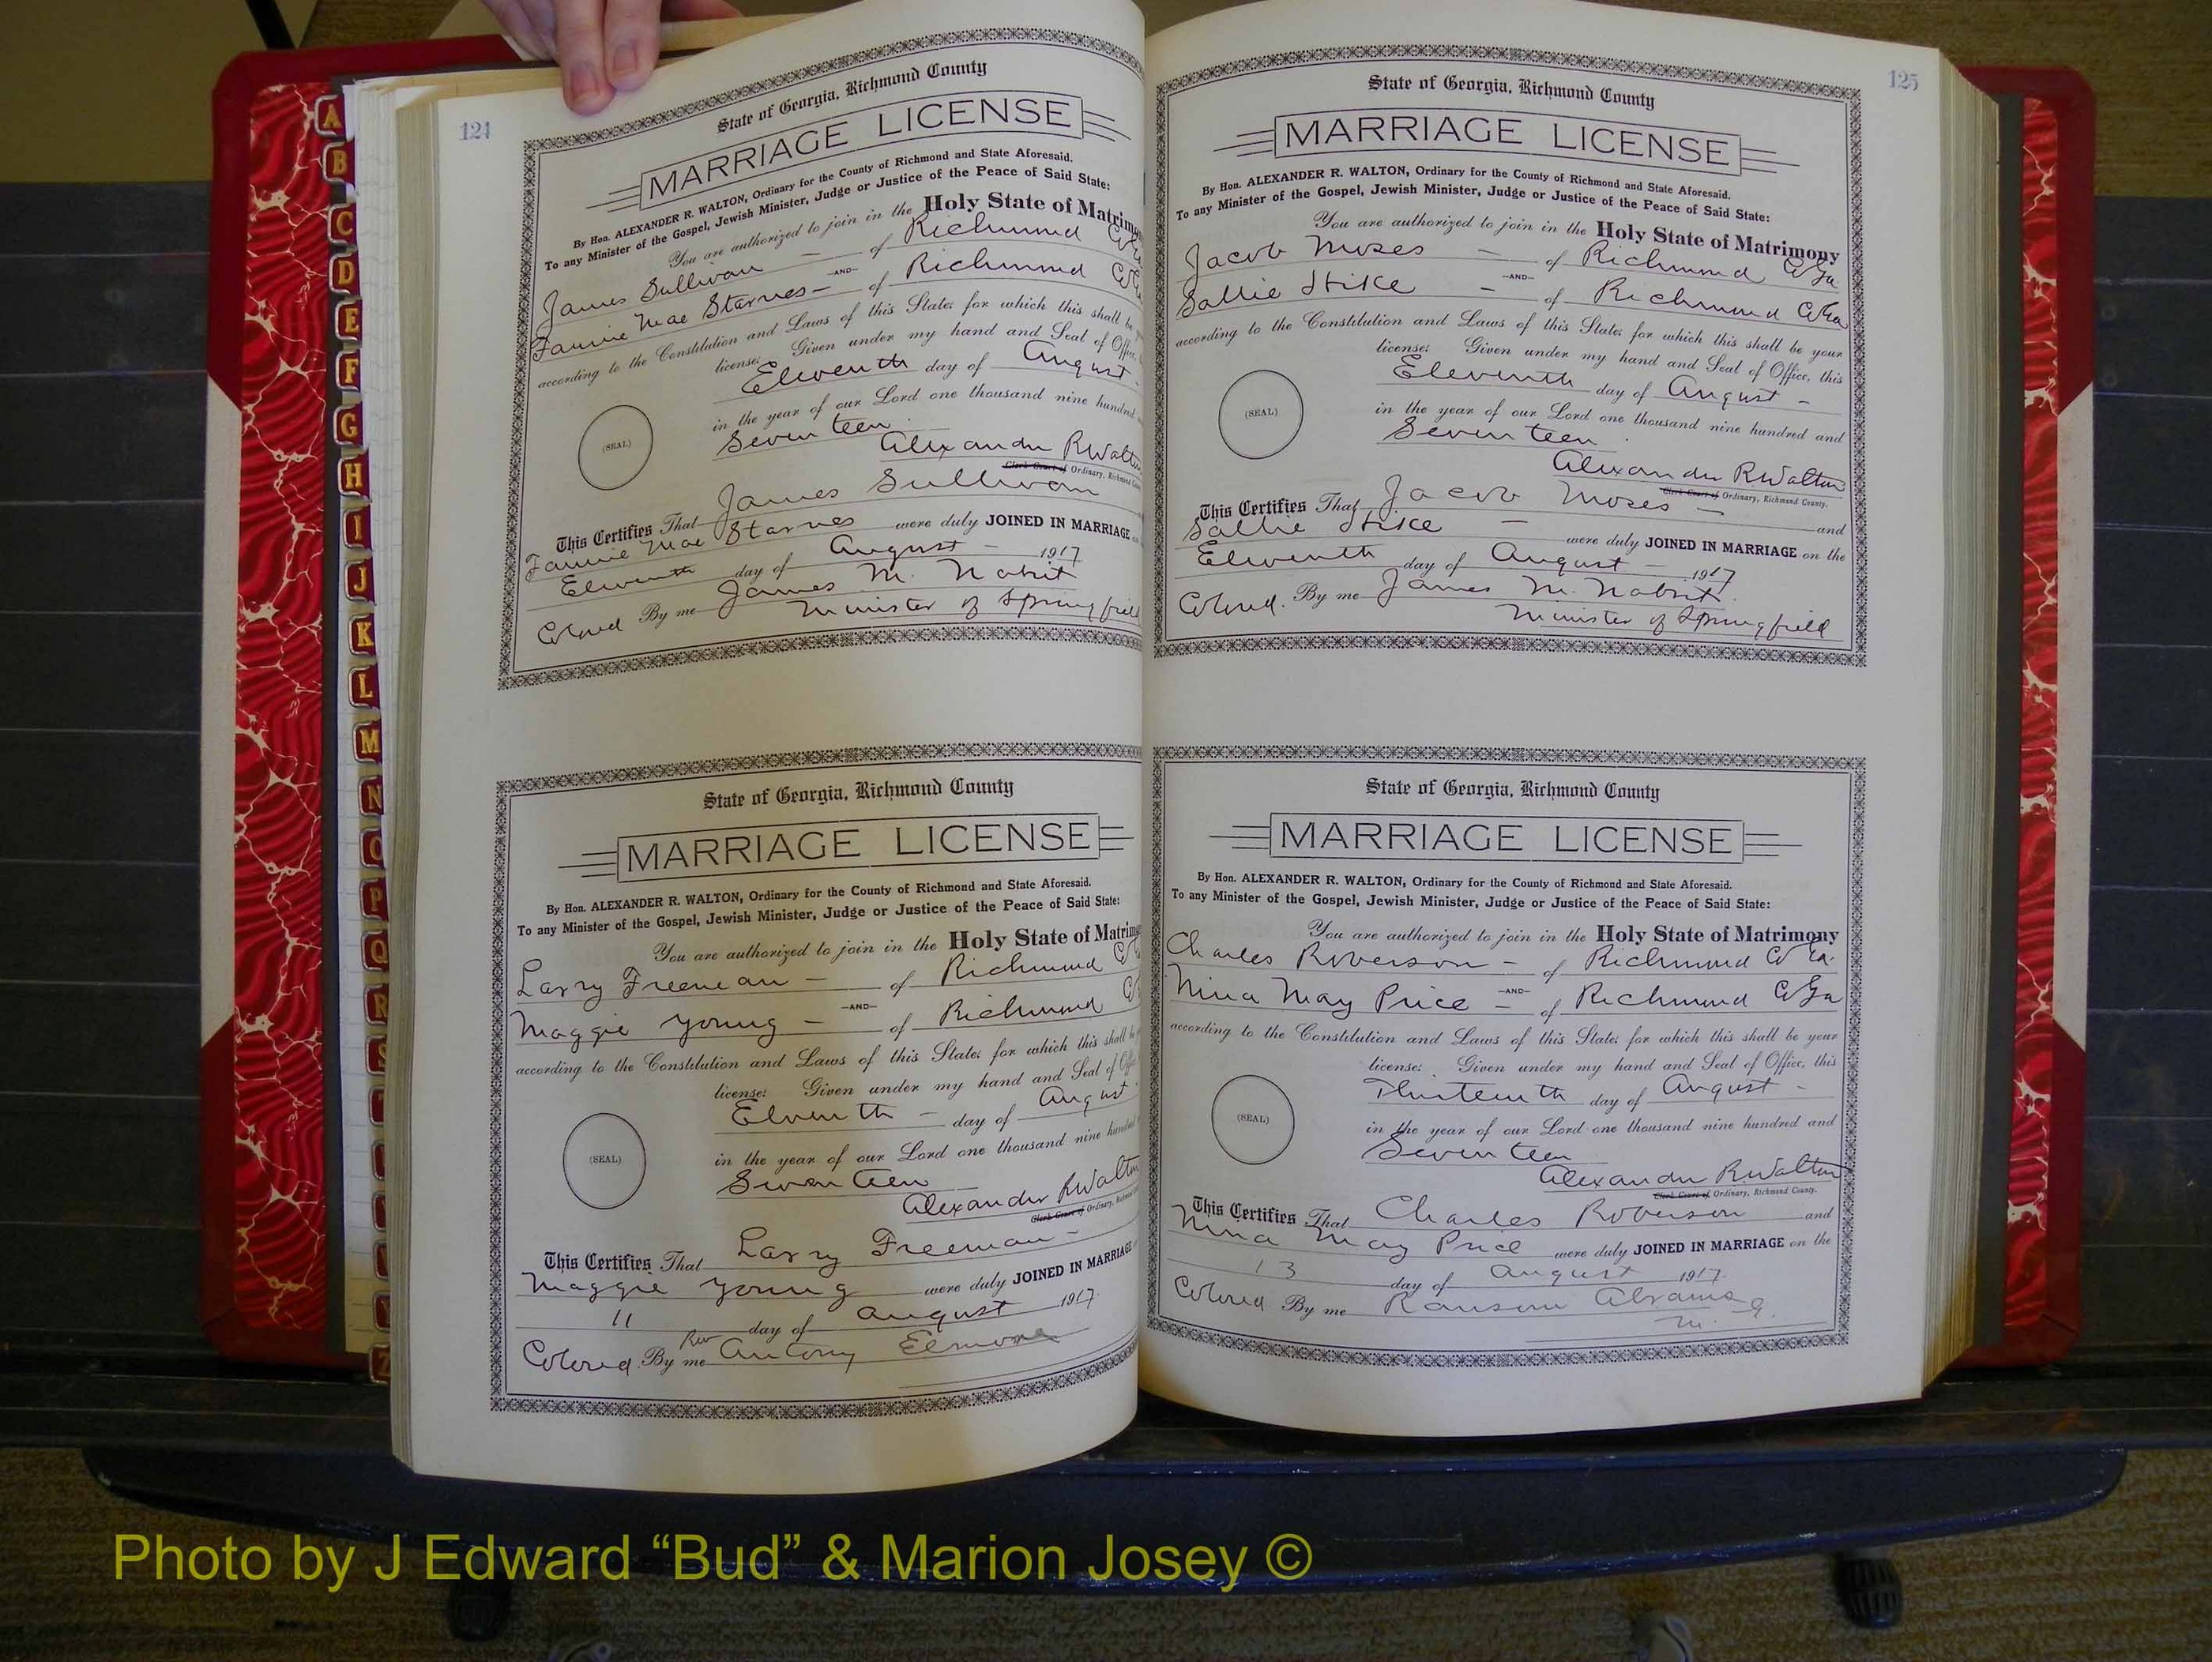 124
State of Georgia, Richmond County
MARRIAGE LICENSE
By Hon. ALEXANDER R. WALTON, Ordinary for the County of Richmond and State Aforesaid.
To any Minister of the Gospel, Jewish Minister, Judge or Justice of the Peace of Said State:
You are authorized to join in the Holy State of Matrimo
James Sullivan — of Richmond Co
—AND—
Fannie Mae Starnes — of Richmond Co
according to the Constitution and Laws of this State; for which this shall be
license: Given under my hand and Seal of Office,
Eleventh day of August
in the year of our Lord one thousand nine hundred
Seventeen
(SEAL)
Alexander R Walton
Clerk Court of Ordinary, Richmond
This Certifies That James Sullivan
Fannie Mae Starnes were duly JOINED IN MARRIAGE
Eleventh day of August — 1917
Colored By me James M. Nabrit
Minister of Springfield
State of Georgia, Richmond County
MARRIAGE LICENSE
By Hon. ALEXANDER R. WALTON, Ordinary for the County of Richmond and State Aforesaid.
To any Minister of the Gospel, Jewish Minister, Judge or Justice of the Peace of Said State:
You are authorized to join in the Holy State of Matrimo
Larry Freeman — of Richmond Co
—AND—
Maggie Young — of Richmond
according to the Constitution and Laws of this State; for which this shall be
license: Given under my hand and Seal of
Eleventh — day of August
in the year of our Lord one thousand nine hundred
Seventeen
(SEAL)
Alexander R Walton
Clerk Court of Ordinary,
This Certifies That Larry Freeman —
Maggie Young were duly JOINED IN MARRIAGE
11 day of August 1917
Colored. By me Rev Antony Elmore
125
State of Georgia, Richmond County
MARRIAGE LICENSE
By Hon. ALEXANDER R. WALTON, Ordinary for the County of Richmond and State Aforesaid.
To any Minister of the Gospel, Jewish Minister, Judge or Justice of the Peace of Said State:
You are authorized to join in the Holy State of Matrimony
Jacob Moses — of Richmond Co Ga
—AND—
Sallie Stike — of Richmond Co Ga
according to the Constitution and Laws of this State; for which this shall be your
license: Given under my hand and Seal of Office, this
Eleventh day of August —
in the year of our Lord one thousand nine hundred and
Seventeen
(SEAL)
Alexander R. Walton
Clerk Court of Ordinary, Richmond County.
This Certifies That Jacob Moses —
Sallie Stike — and
were duly JOINED IN MARRIAGE on the
Eleventh day of August — 1917
Colored. By me James M. Nabrit.
Minister of Springfield
State of Georgia, Richmond County
MARRIAGE LICENSE
By Hon. ALEXANDER R. WALTON, Ordinary for the County of Richmond and State Aforesaid.
To any Minister of the Gospel, Jewish Minister, Judge or Justice of the Peace of Said State:
You are authorized to join in the Holy State of Matrimony
Charles Roberson — of Richmond Co Ga.
—AND—
Nina May Price — of Richmond Co Ga
according to the Constitution and Laws of this State; for which this shall be your
license: Given under my hand and Seal of Office, this
Thirteenth day of August —
in the year of our Lord one thousand nine hundred and
Seventeen
(SEAL)
Alexander R. Walton
Clerk Court of Ordinary, Richmond County.
This Certifies That Charles Roberson and
Nina May Price were duly JOINED IN MARRIAGE on the
13 day of August 1917.
Colored By me Ransom Abrams
M. G.
A
B
C
D
E
F
G
H
I
J
K
L
M
N
O
P
Q
R
S
Z
Photo by J Edward “Bud” & Marion Josey ©